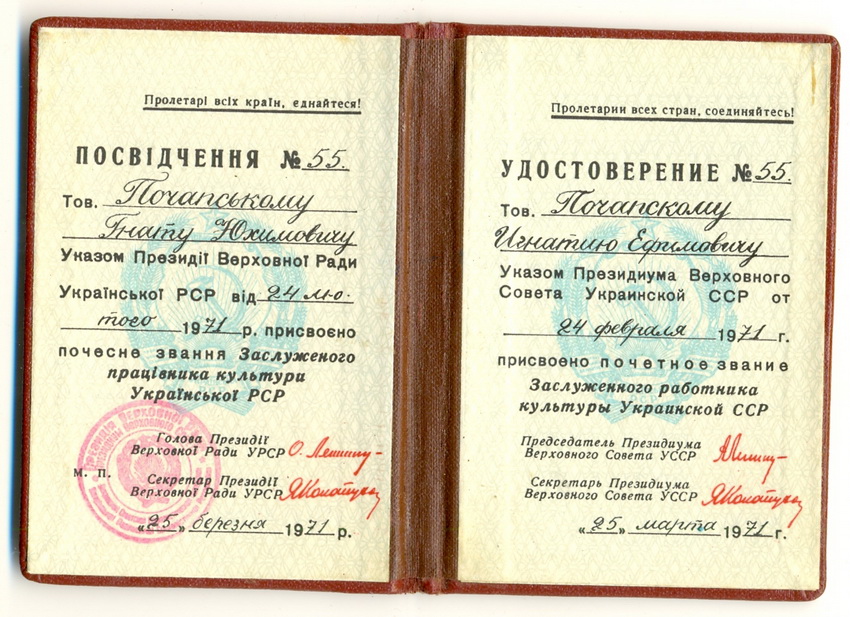 Пролетарі всіх країн, єднайтеся!
ПОСВІДЧЕННЯ № 55.
Тов. Почапському
Гнату Юхимовичу
Указом Президії Верховної Ради
Української РСР від 24 лю-
того 1971 р. присвоєно
почесне звання Заслуженого
працівника культури
Української РСР
Голова Президії
Верховної Ради УРСР
м. п.
Секретар Президії
Верховної Ради УРСР
«25» березня 1971 р.
Пролетарии всех стран, соединяйтесь!
УДОСТОВЕРЕНИЕ № 55.
Тов. Почапскому
Игнатию Ефимовичу
Указом Президиума Верховного
Совета Украинской ССР от
24 февраля 1971 г.
присвоено почетное звание
Заслуженного работника
культуры Украинской ССР
Председатель Президиума
Верховного Совета УССР
Секретарь Президиума
Верховного Совета УССР
«25» марта 1971 г.